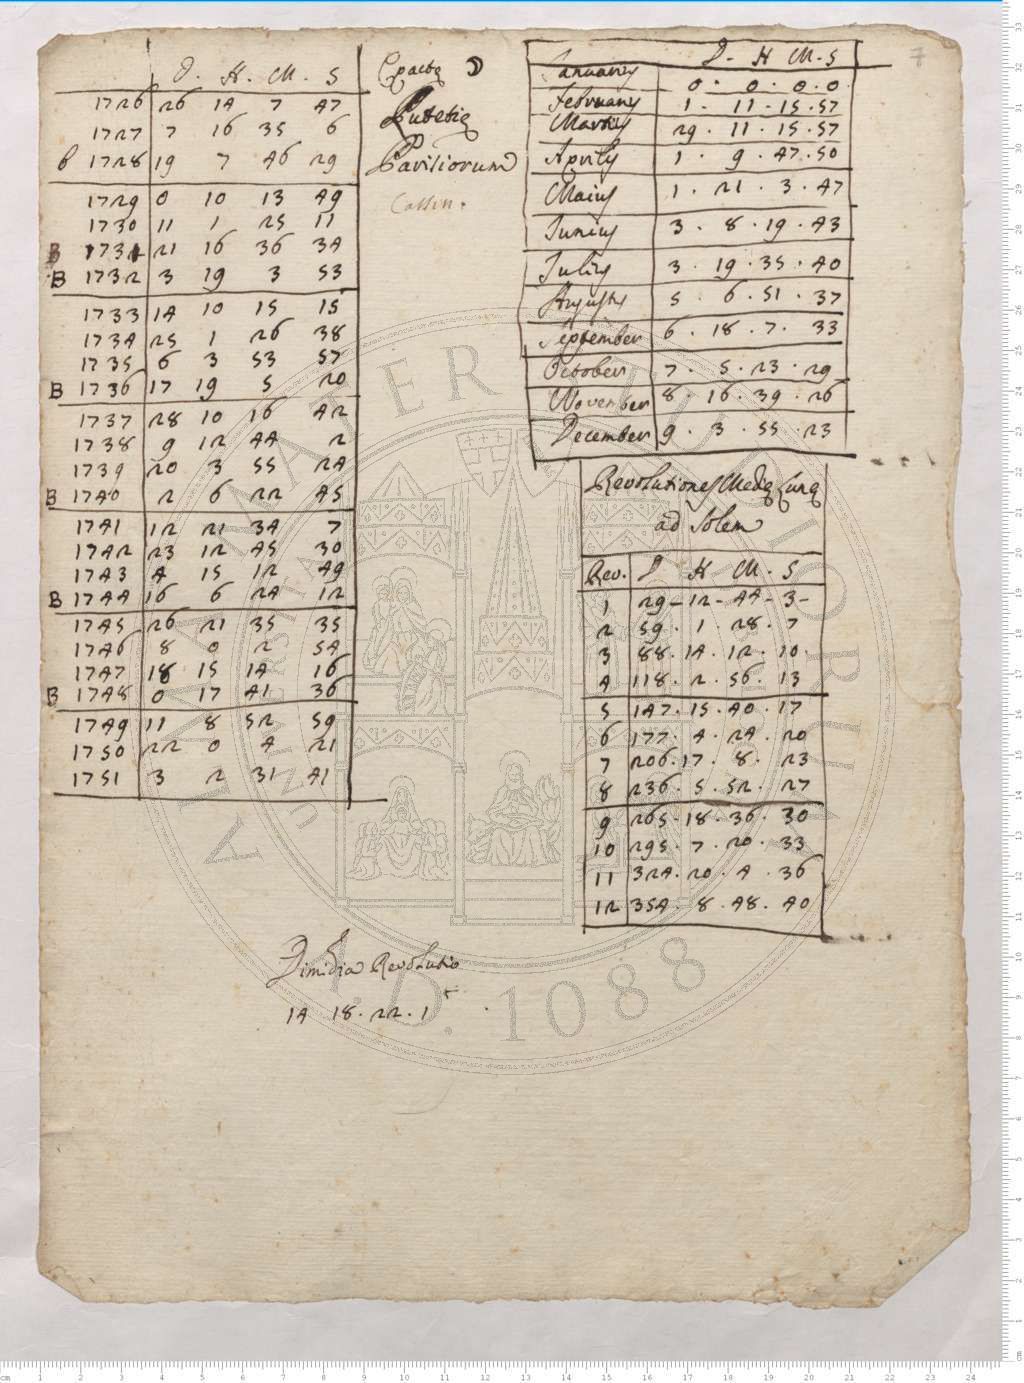 D. H. M. S
1726 26 14 7 47
1727 7 16 35 6
b 1728 19 7 46 29
1729 0 10 13 49
1730 11 1 25 11
1731 21 16 36 34
B 1732 3 19 3 53
1733 14 10 15 15
1734 25 1 26 38
1735 6 3 53 57
B 1736 17 19 5 20
1737 28 10 16 42
1738 9 12 44 2
1739 20 3 55 24
B 1740 2 6 22 45
1741 12 21 34 7
1742 23 12 45 30
1743 4 15 12 49
B 1744 16 6 24 12
1745 26 21 35 35
1746 8 0 2 54
1747 18 15 14 16
B 1748 0 17 41 36
1749 11 8 52 59
1750 22 0 4 21
1751 3 2 31 41
Epactę ☽
Lutetię
Parisiorum
Cassin.
D. H M. S
Januariy 0. 0. 0. 0
Februariy 1. 11. 15. 57
Martiy 29. 11. 15. 57
Aprilis 1. 9. 47. 50
Maius 1. 21. 3. 47
Junius 3. 8. 19. 43
Julius 3. 19. 35. 40
Augustus 5. 6. 51. 37
September 6. 18. 7. 33
October 7. 5. 23. 29
November 8. 16. 39. 26
December 9. 3. 55. 23
Revolutiones Medię Lunę
ad Solem
Rev. D H M. S
1 29- 12- 44- 3-
2 59. 1. 28. 7
3 88. 14. 12. 10
4 118. 2. 56. 13
5 147. 15. 40. 17
6 177. 4. 24. 20
7 206. 17. 8. 23
8 236. 5. 52. 27
9 265. 18. 36. 30
10 295. 7. 20. 33
11 324. 20. 4. 36
12 354. 8. 48. 40
Dimidia Revolutio
14 18. 22. 1
ALMA MATER STUDIORUM
A.D. 1088